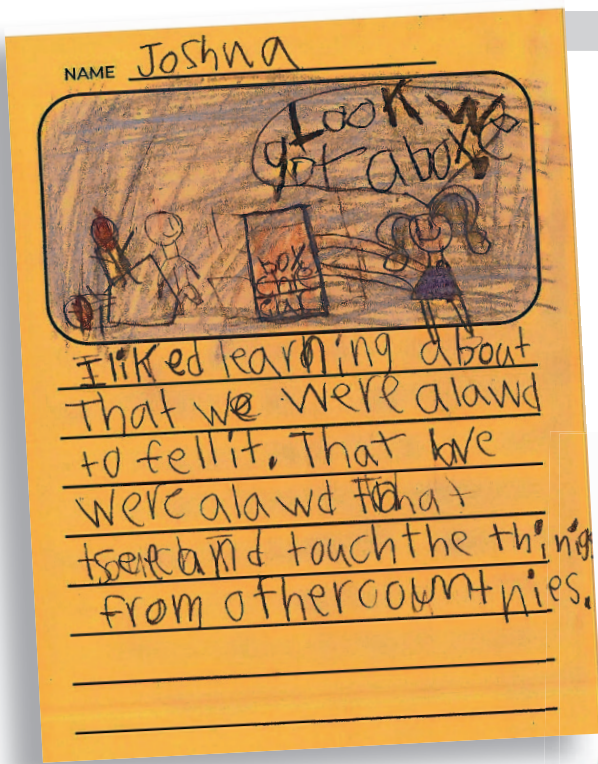 NAME Joshua
Look we
got a boxe
box
I liked learning about
That we were alawd
to fell it. That we
were alawd
and touch the things
from other countnies.